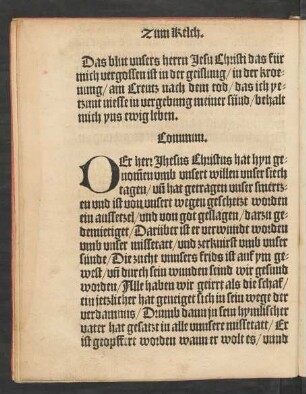 Zum Kelch.
Das blut unsers herrn Jesu Christi das für
mich vergossen ist in der geislung / in der kroe-
nung / am Creutz nach dem tod / das ich ye-
tzunt niesse in vergebung meiner sünd / behalt
mich yns ewig leben.
Commun.
DEr herr Jhesus Christus hat hyn ge-
nomen umb unsert willen unser siech
tagen / uñ hat getragen unser smertz-
en und ist von unsert wegen geschetzt worden
ein aussetzel / und von got geslagen / darzu ge-
demietiget / Darüber ist er verwundt worden
umb unser missetatt / und zerknirst umb unser
sünde / Die zucht unnsers frids ist auf ym ge-
west / uñ durch sein wunden seind wir gesund
worden / Alle haben wir geirrt als die schaf /
ein jetzlicher hat geneiget sich in sein wege der
verdamnus / Drumb dann ja sein hymlischer
vater hat gesatzt in alle unnsere missetatt / Er
ist geopffert worden wann er wolt es / unnd